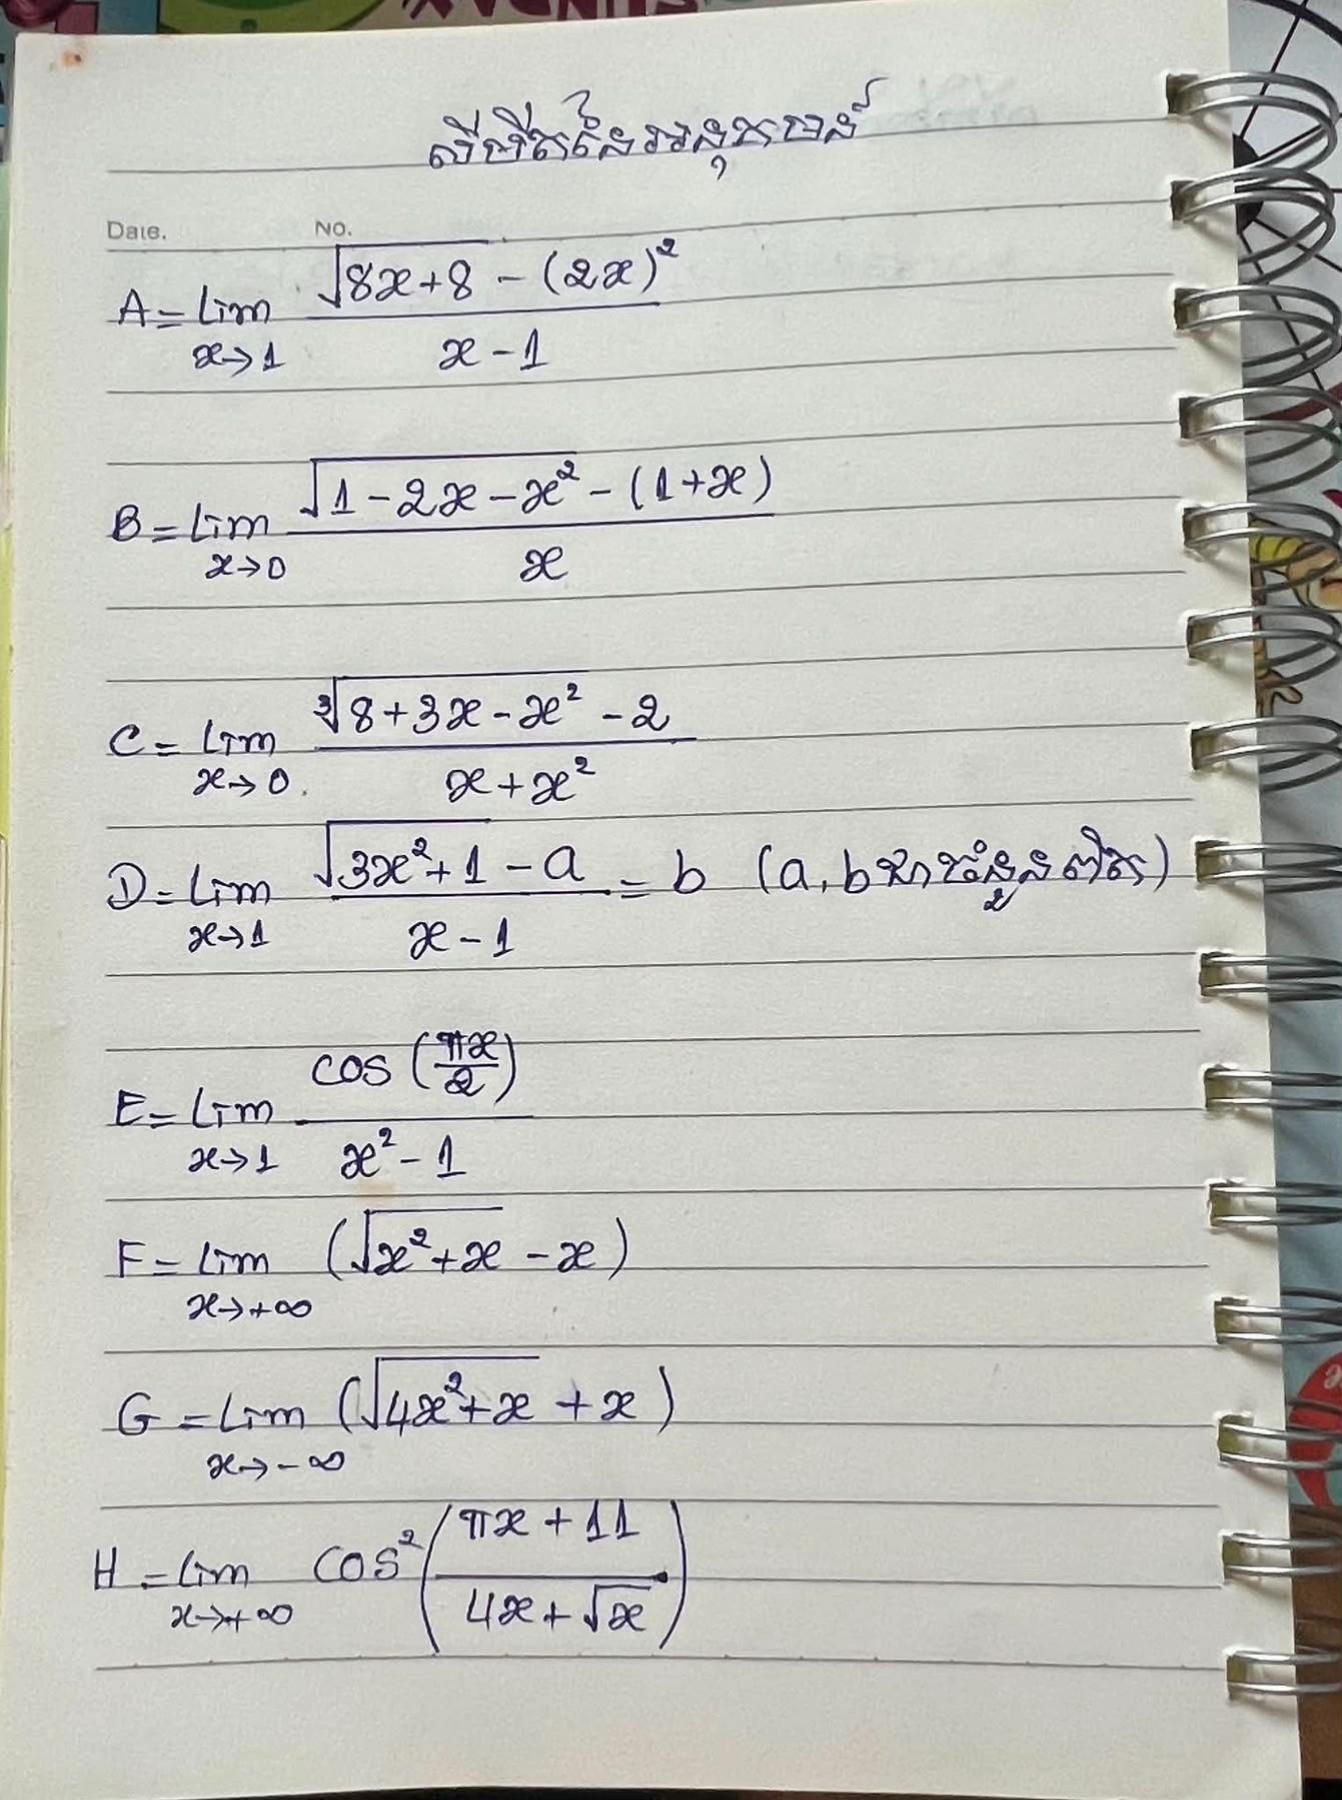 លីមីតនៃអនុគមន៍
Date. No.
A = lim x→1 (√(8x+8) - (2x)²) / (x - 1)
B = lim x→0 (√(1 - 2x - x²) - (1+x)) / x
C = lim x→0 (∛(8+3x-x²) - 2) / (x + x²)
D = lim x→1 (√(3x²+1) - a) / (x - 1) = b (a, b ជាចំនួនពិត)
E = lim x→1 cos(πx/2) / (x² - 1)
F = lim x→+∞ (√(x²+x) - x)
G = lim x→-∞ (√(4x²+x) + x)
H = lim x→+∞ cos²((πx + 11) / (4x + √x))